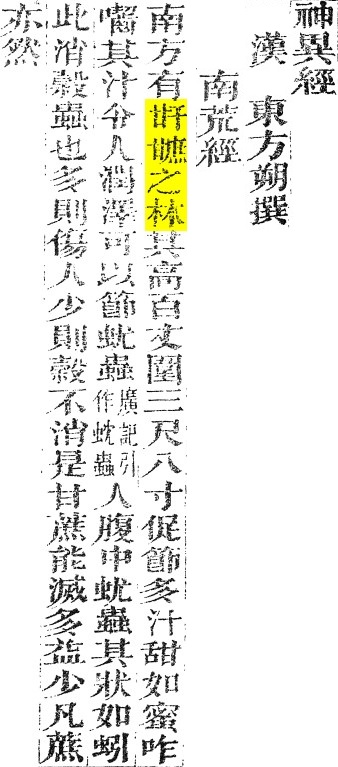 神異經
漢　東方朔撰
南荒經
南方有之林其高百丈圍三尺八寸促節多汁甜如蜜咋
嚙其汁令人潤澤可以節蚘蟲廣記引作蟲人腹中蚘蟲其狀如蚓
此消穀蟲也多則傷人少則穀不消是甘蔗能滅多益少凡蔗
亦然